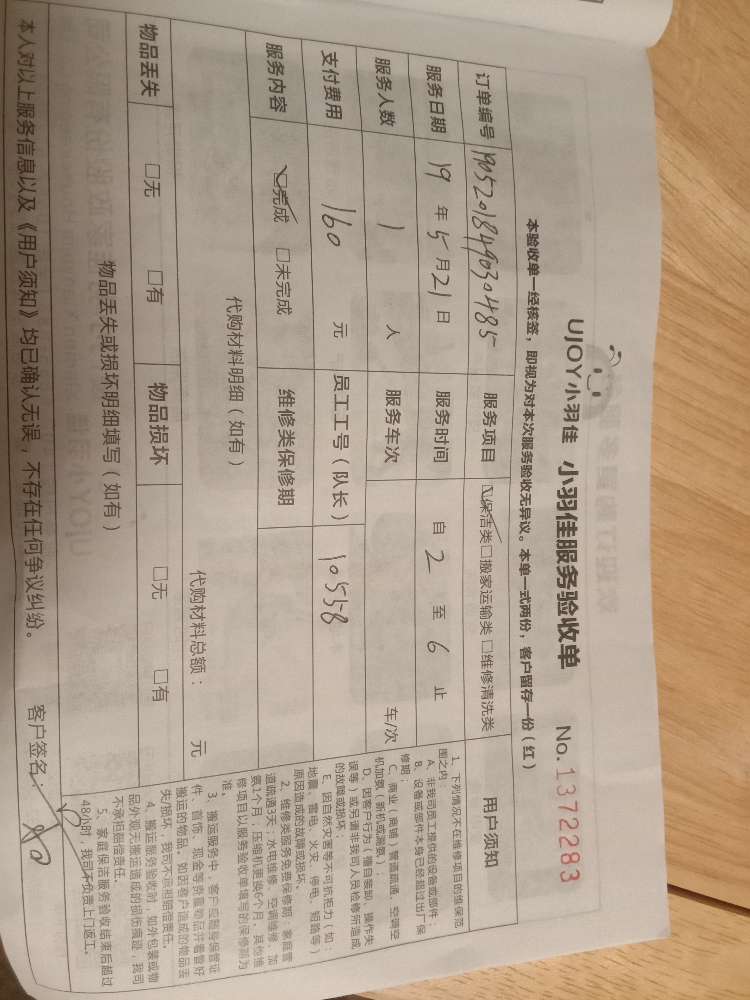 UJOY小羽佳 小羽佳服务验收单 No.1372283
本验收单一经核签，即视为对本次服务验收无异议。本单一式两份，客户留存一份（红）
订单编号 1905201849030485 服务项目 ☑保洁类□搬家运输类 □维修清洗类
服务日期 19 年 5 月 21 日 服务时间 自 2 至 6 止
服务人数 1 人 服务车次 车/次
支付费用 160 元 员工工号（队长） 10558
服务内容 ☑完成 □未完成 维修类保修期
代购材料明细（如有） 代购材料总额： 元
物品丢失 □无 □有 物品损坏 □无 □有
物品丢失或损坏明细填写（如有）
用户须知
1、下列情况不在维修项目的维保范
围之内：
A、非我司员工提供的设备或部件；
B、设备或部件本身已经超过出厂保
修期；
C、商业（商铺）管道疏通、空调空
机加氨（新机或漏氨）；
D、因客户行为（擅自装卸、操作失
误等）或另请非我司人员检修所造成
的故障或损坏；
E、因自然灾害等不可抗拒力（如：
地震、雷电、火灾、停电、短路等）
原因造成的故障或损坏。
2、维修类服务免费保修期：家庭管
道疏通3天；水电维修、空调维修、加
氨1个月，压缩机更换6个月，其他维
修项目以服务验收单填写的保修期为
准。
3、搬运服务中，客户应随身保管证
件、首饰、现金等贵重物品并看管好
搬运的物品，如因客户造成的物品丢
失/损坏，我司不承担赔偿责任。
4、搬运服务验收时，如外包装或物
品外观无搬运造成的损伤痕迹，我司
不承担赔偿责任。
5、家庭保洁服务验收结束后超过
48小时，我司不负责上门返工。
本人对以上服务信息以及《用户须知》均已确认无误，不存在任何争议纠纷。 客户签名：